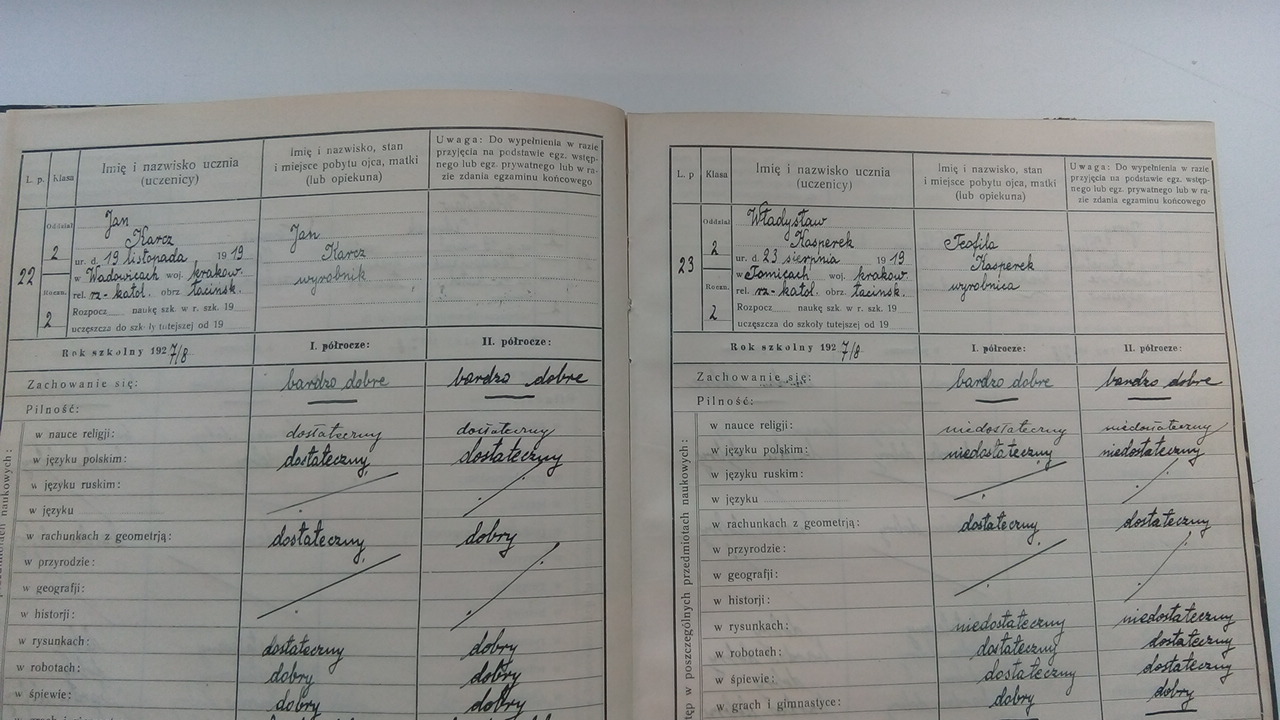 L. p.
Klasa
Imię i nazwisko ucznia
(uczenicy)
Imię i nazwisko, stan
i miejsce pobytu ojca, matki
(lub opiekuna)
Uwaga: Do wypełnienia w razie
przyjęcia na podstawie egz. wstęp-
nego lub egz. prywatnego lub w ra-
zie zdania egzaminu końcowego
22
Oddział
2
Roczn.
2
Jan
Karcz
ur. d. 19 listopada 1919
w Wadowicach woj. krakow.
rel. rz-katol. obrz. łacińsk.
Rozpocz. naukę szk. w r. szk. 19
uczęszcza do szkoły tutejszej od 19
Jan
Karcz
wyrobnik
Rok szkolny 1927/8
I. półrocze:
II. półrocze:
Zachowanie się: bardzo dobre bardzo dobre
Pilność:
w nauce religji: dostateczny dostateczny
w języku polskim: dostateczny dostateczny
w języku ruskim:
w języku
w rachunkach z geometrją: dostateczny dobry
w przyrodzie:
w geografji:
w historji:
w rysunkach: dostateczny dobry
w robotach: dobry dobry
w śpiewie: dobry dobry
L. p
Klasa
Imię i nazwisko ucznia
(uczenicy)
Imię i nazwisko, stan
i miejsce pobytu ojca, matki
(lub opiekuna)
Uwaga: Do wypełnienia w razie
przyjęcia na podstawie egz. wstęp-
nego lub egz. prywatnego lub w ra-
zie zdania egzaminu końcowego
23
Oddział
2
Roczn.
2
Władysław
Kasperek
ur. d. 23 sierpnia 1919
w Tomicach woj. krakow.
rel. rz-katol. obrz. łacińsk.
Rozpocz. naukę szk. w r. szk. 19
uczęszcza do szkoły tutejszej od 19
Teofila
Kasperek
wyrobnica
Rok szkolny 1927/8
I. półrocze:
II. półrocze:
Zachowanie się: bardzo dobre bardzo dobre
Pilność:
w poszczególnych przedmiotach naukowych:
w nauce religji: niedostateczny niedostateczny
w języku polskim: niedostateczny niedostateczny
w języku ruskim:
w języku
w rachunkach z geometrją: dostateczny dostateczny
w przyrodzie:
w geografji:
w historji:
w rysunkach: niedostateczny niedostateczny
w robotach: dostateczny dostateczny
w śpiewie: dostateczny dostateczny
w grach i gimnastyce: dobry dobry